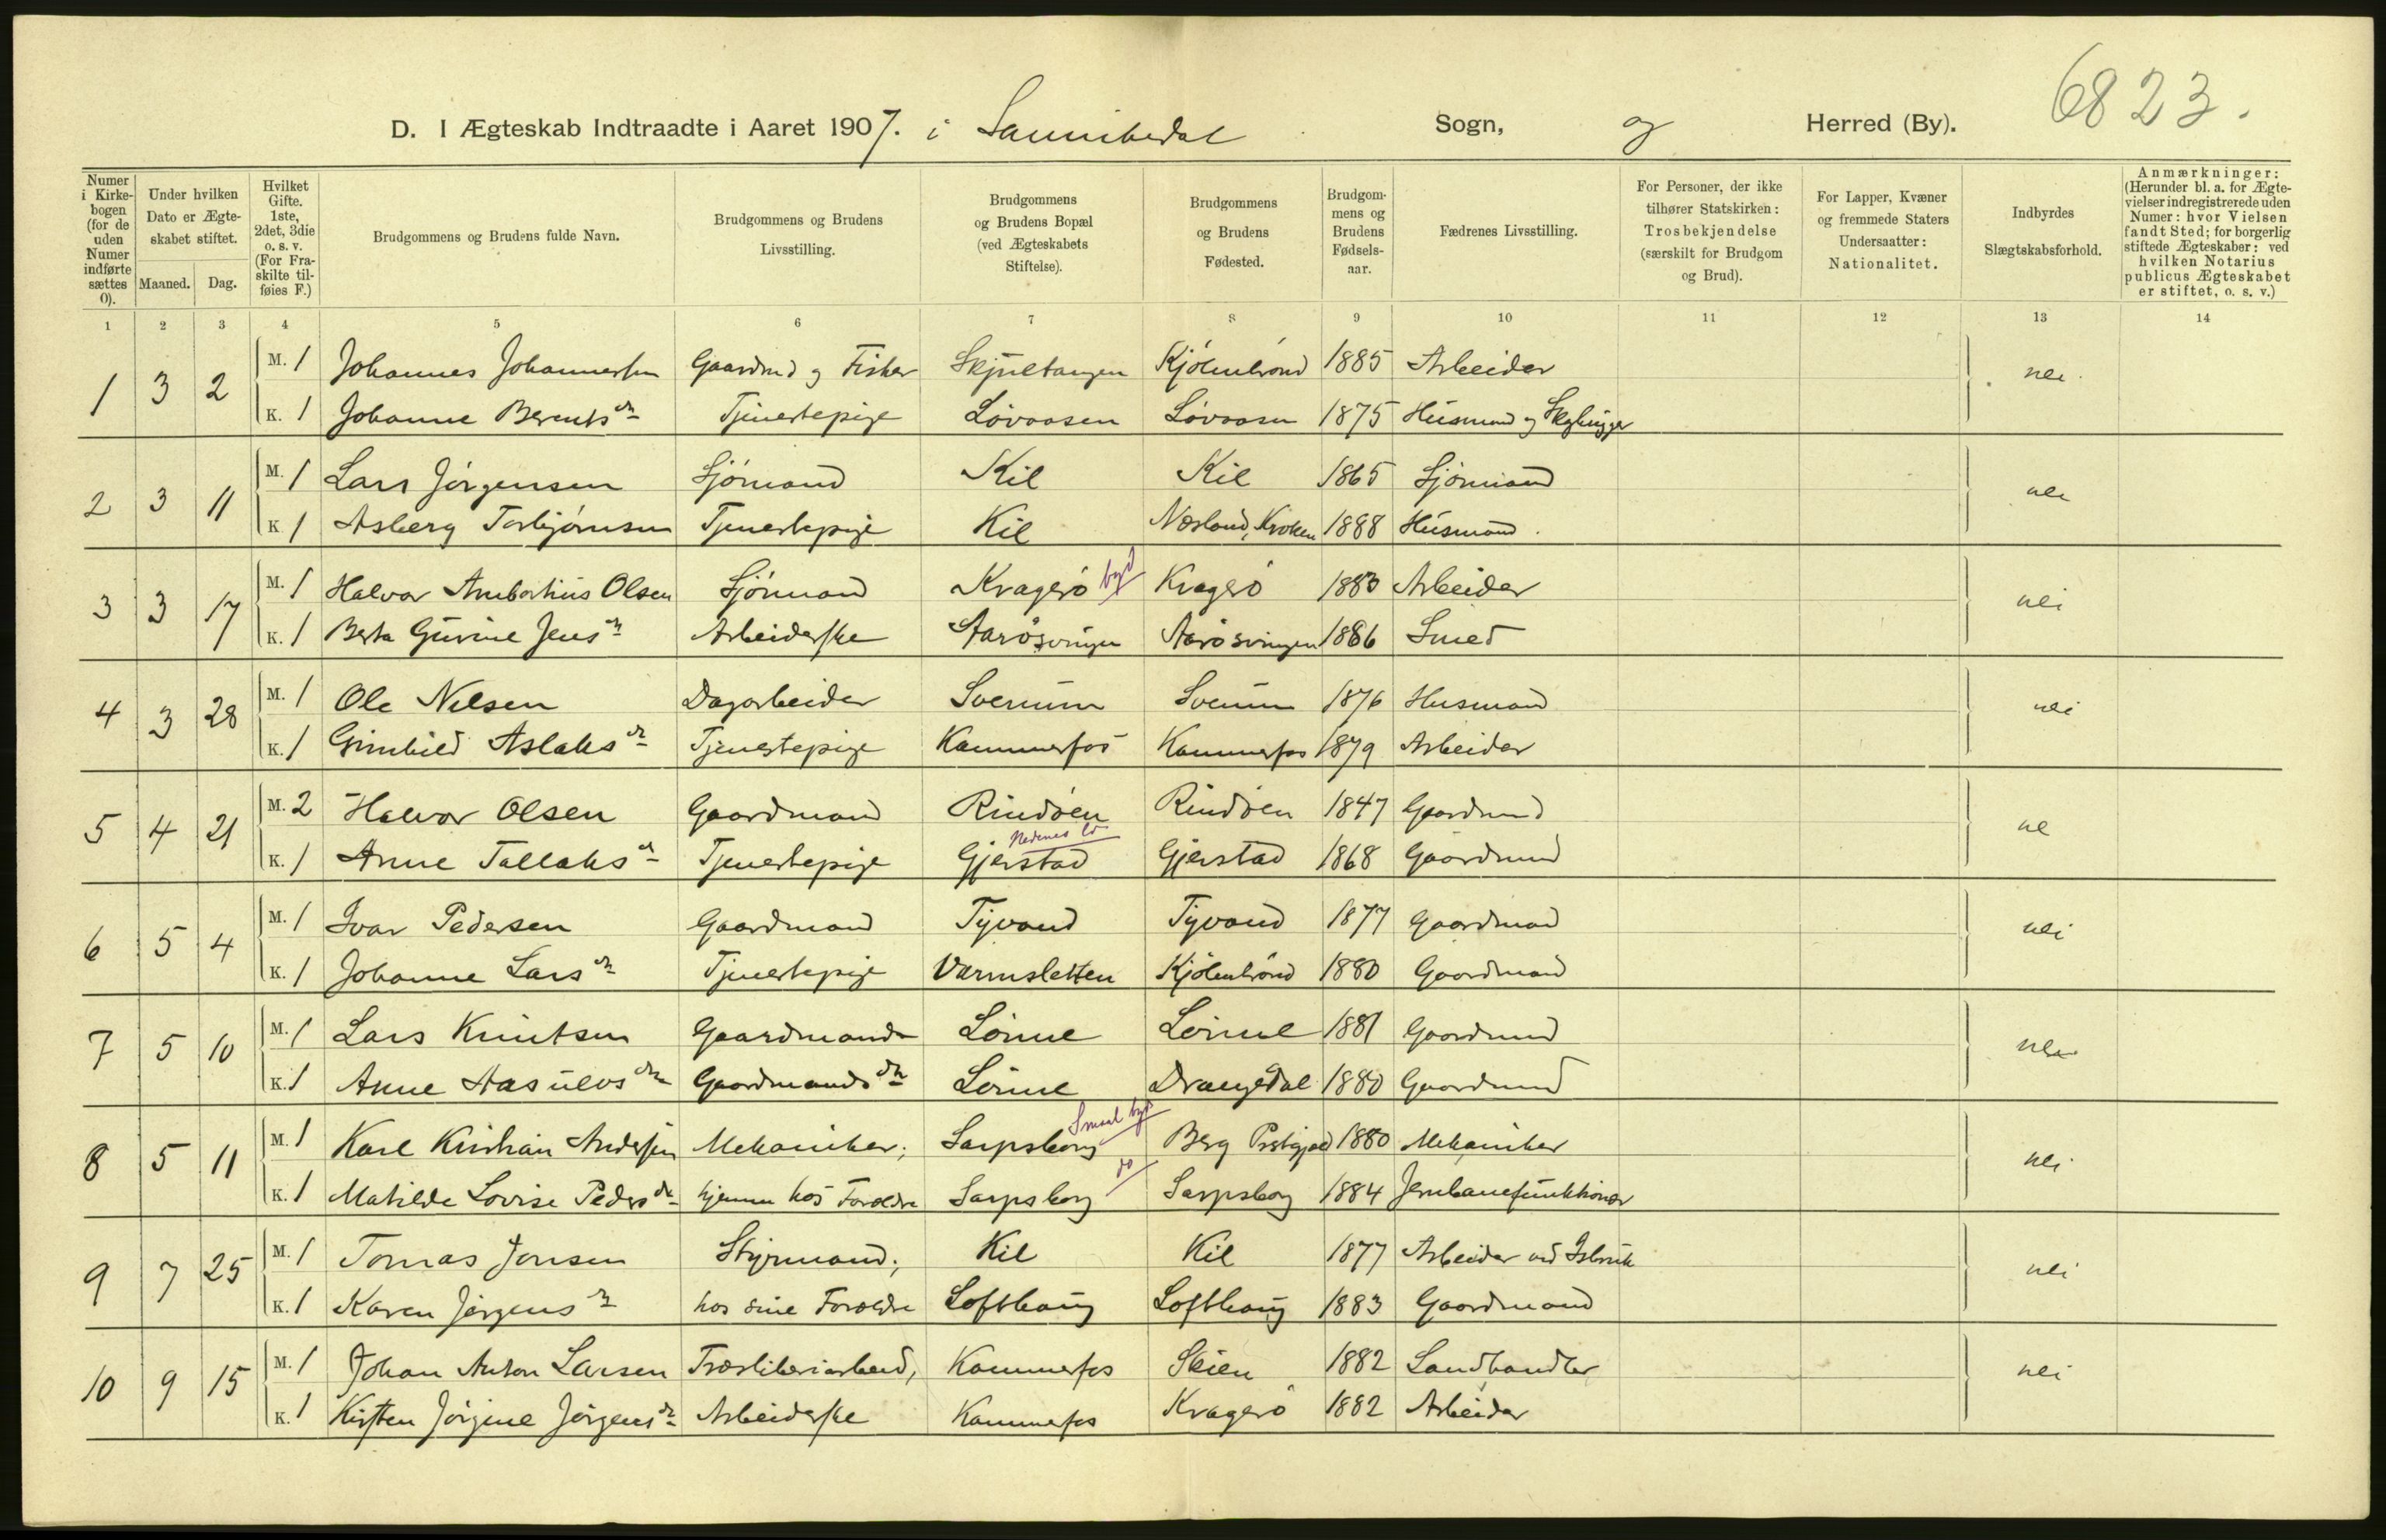 6823.
D. I Ægteskab Indtraadte i Aaret 1907. i Sannikedal Sogn, og Herred (By).
Numer i Kirkebogen (for de uden Numer indførte sættes 0).
Under hvilken Dato er Ægteskabet stiftet.
Maaned. Dag.
Hvilket Gifte. 1ste, 2det, 3die o. s. v. (For Fraskilte tilføies F.)
Brudgommens og Brudens fulde Navn.
Brudgommens og Brudens Livsstilling.
Brudgommens og Brudens Bopæl (ved Ægteskabets Stiftelse).
Brudgommens og Brudens Fødested.
Brudgommens og Brudens Fødselsaar.
Fædrenes Livsstilling.
For Personer, der ikke tilhører Statskirken: Trosbekjendelse (særskilt for Brudgom og Brud).
For Lapper, Kvæner og fremmede Staters Undersaatter: Nationalitet.
Indbyrdes Slægtskabsforhold.
Anmærkninger: (Herunder bl. a. for Ægtevielser indregistrerede uden Numer: hvor Vielsen fandt Sted; for borgerlig stiftede Ægteskaber: ved hvilken Notarius publicus Ægteskabet er stiftet, o. s. v.)
1 2 3 4 5 6 7 8 9 10 11 12 13 14
1 3 2 M. 1 Johannes Johannessen Gaardmd og Fisker Skjultangen Kjölenbrønd 1885 Arbeider nei
K. 1 Johanne Berentsdr Tjenestepige Lövaasen Lövaasen 1875 Husmand og Skybygger
2 3 11 M. 1 Lars Jörgensen Sjömand Kil Kil 1865 Sjömand nei
K 1 Asberg Torbjörnsen Tjenestepige Kil Næsland, Kroken 1888 Husmand.
3 3 17 M. 1 Halvor Ambortius Olsen Sjömand Kragerö byd Kragerö 1883 Arbeider nei
K. 1 Berta Gurine Jensdr Arbeiderske Aarösvingen Aarösvingen 1886 Smed
4 3 28 M. 1 Ole Nilsen Dagarbeider Svenum Svenum 1876 Husmand nei
K. 1 Gunhild Aslaksdr Tjenestepige Kammerfos Kammerfos 1879 Arbeider
5 4 21 M. 2 Halvor Olsen Gaardmand Rindöen Rindöen 1847 Gaardmd ne
Nedenes
K. 1 Anne Tallaksdr Tjenestepige Gjerstad Gjerstad 1868 Gaardmand
6 5 4 M. 1 Ivar Pedersen Gaardmand Tyvand Tyvand 1877 Gaardmand nei
K. 1 Johanne Larsdr Tjenestepige Varmsletten Kjölenbrönd 1880 Gaardmand
7 5 10 M. 1 Lars Knutsen Gaardmand Lönne Lönne 1881 Gaardmand nei
K. 1 Anne Aasulvsdr Gaardmandsdr Lönne Drangedal 1880 Gaardmand
Smaal byd
8 5 11 M. 1 Karl Kristian Andersen Mekaniker; Sarpsborg Berg Prstgjæld 1880 Mekaniker nei
do
K. 1 Matilde Lovise Pedersdr hjemme hos Forældre Sarpsborg Sarpsborg 1884 Jernbanefunktionær
9 7 25 M. 1 Tomas Jonsen Styrmand; Kil Kil 1877 Arbeider ved Isbruk nei
K. 1 Karen Jörgensdr hos sine Forældre Lofthaug Lofthaug 1883 Gaardmand
10 9 15 M. 1 Johan Anton Larsen Træsliberiarbeid, Kammerfos Skien 1882 Landhandler nei
K. 1 Kirsten Jörgine Jörgensdr Arbeiderske Kammerfos Kragerö 1882 Arbeider